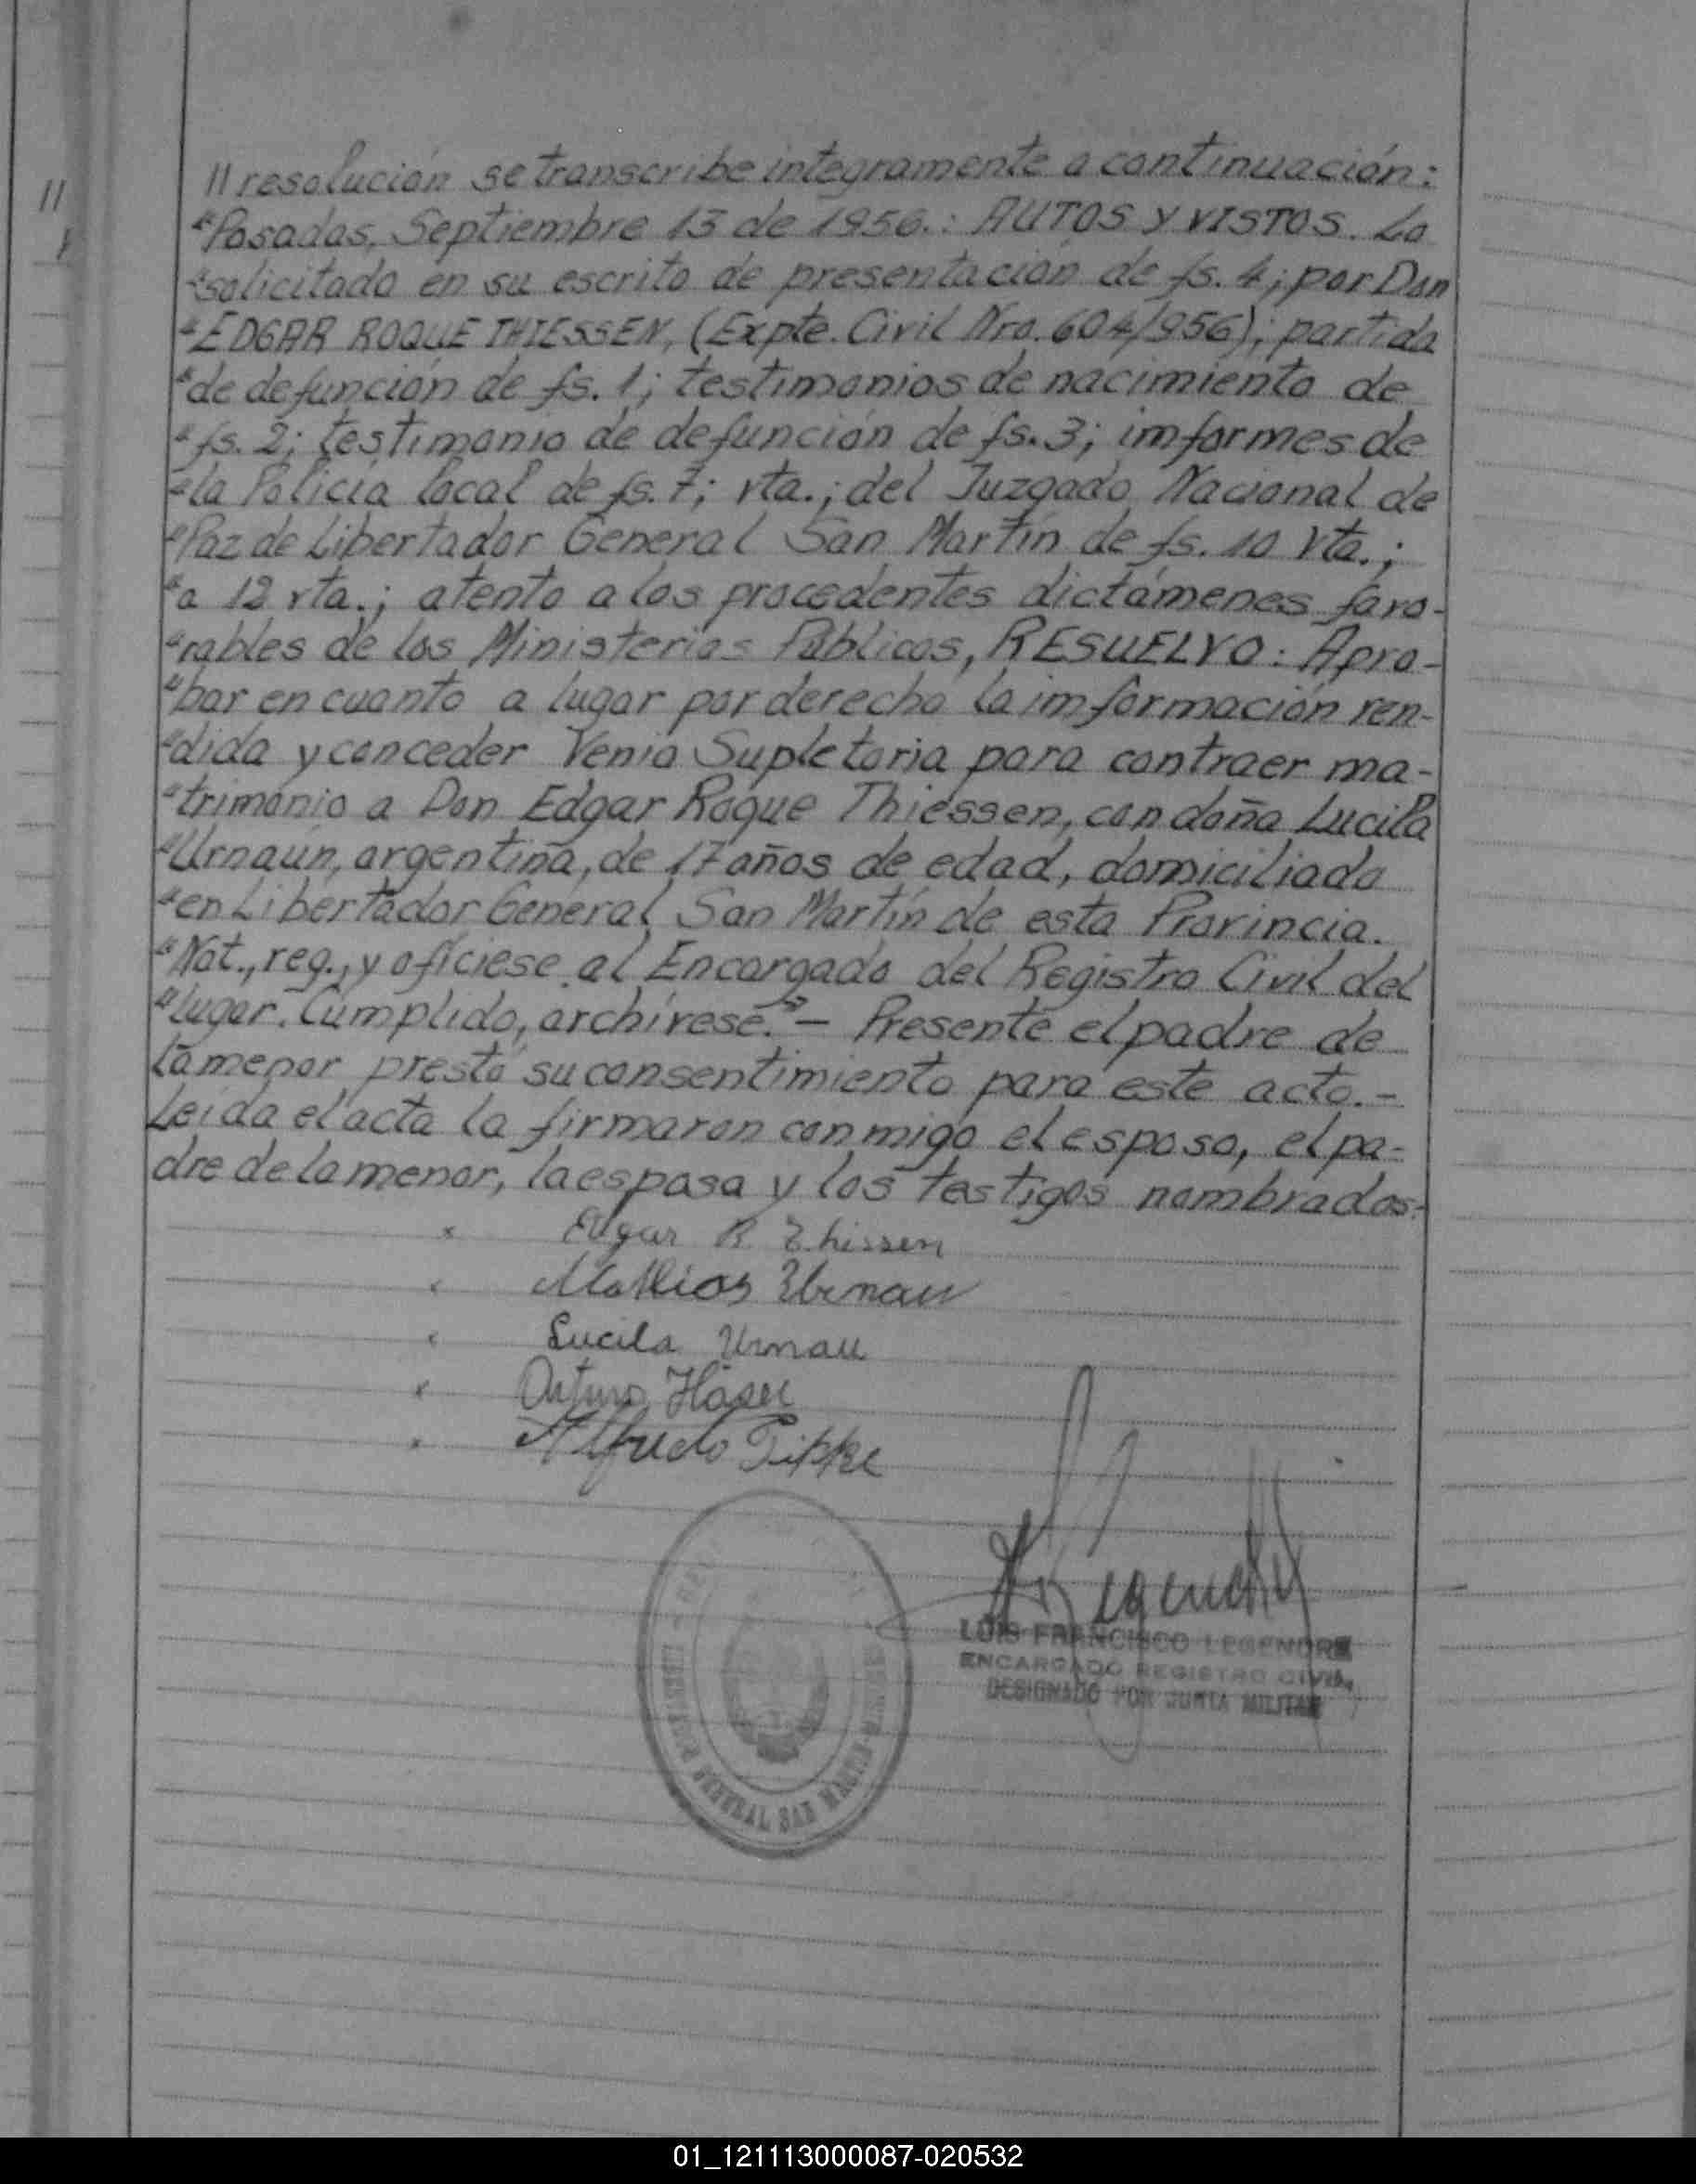 // resolución se transcribe integramente a continuación:
"Posadas, Septiembre 13 de 1956.: AUTOS Y VISTOS. Lo
"solicitado en su escrito de presentación de fs. 4; por Don
"EDGAR ROQUE THIESSEN, (Expte. Civil Nro. 604/956); partida
"de defunción de fs. 1; testimonios de nacimiento de
"fs. 2; testimonio de defunción de fs. 3; imformes de
"la Policía local de fs. 7; vta.; del Juzgado Nacional de
"Paz de Libertador General San Martín de fs. 10 Vta.;
"a 12 vta.; atento a los procedentes dictámenes favo-
"rables de los Ministerios Públicos, RESUELVO: Apro-
"bar en cuanto a lugar por derecho la imformación ren-
"dida y conceder Venia Supletoria para contraer ma-
"trimonio a Don Edgar Roque Thiessen, con doña Lucila
"Urnaún, argentina, de 17 años de edad, domiciliada
"en Libertador General San Martín de esta Provincia.
"Not., reg., y ofíciese al Encargado del Registro Civil del
"lugar. Cúmplido, archívese." — Presente el padre de
la menor prestó su consentimiento para este acto.-
Leída el acta la firmaron conmigo el esposo, el pa-
dre de la menor, la esposa y los testigos nombrados.-
Edgar R. Thiessen
Mathias Urnau
Lucila Urnau
Arturo
Alfredo
LUIS FRANCISCO LEGENDRE
ENCARGADO REGISTRO CIVIL
DESIGNADO POR JUNTA MILITAR
LIBERTADOR GENERAL SAN MARTIN
01_121113000087-020532